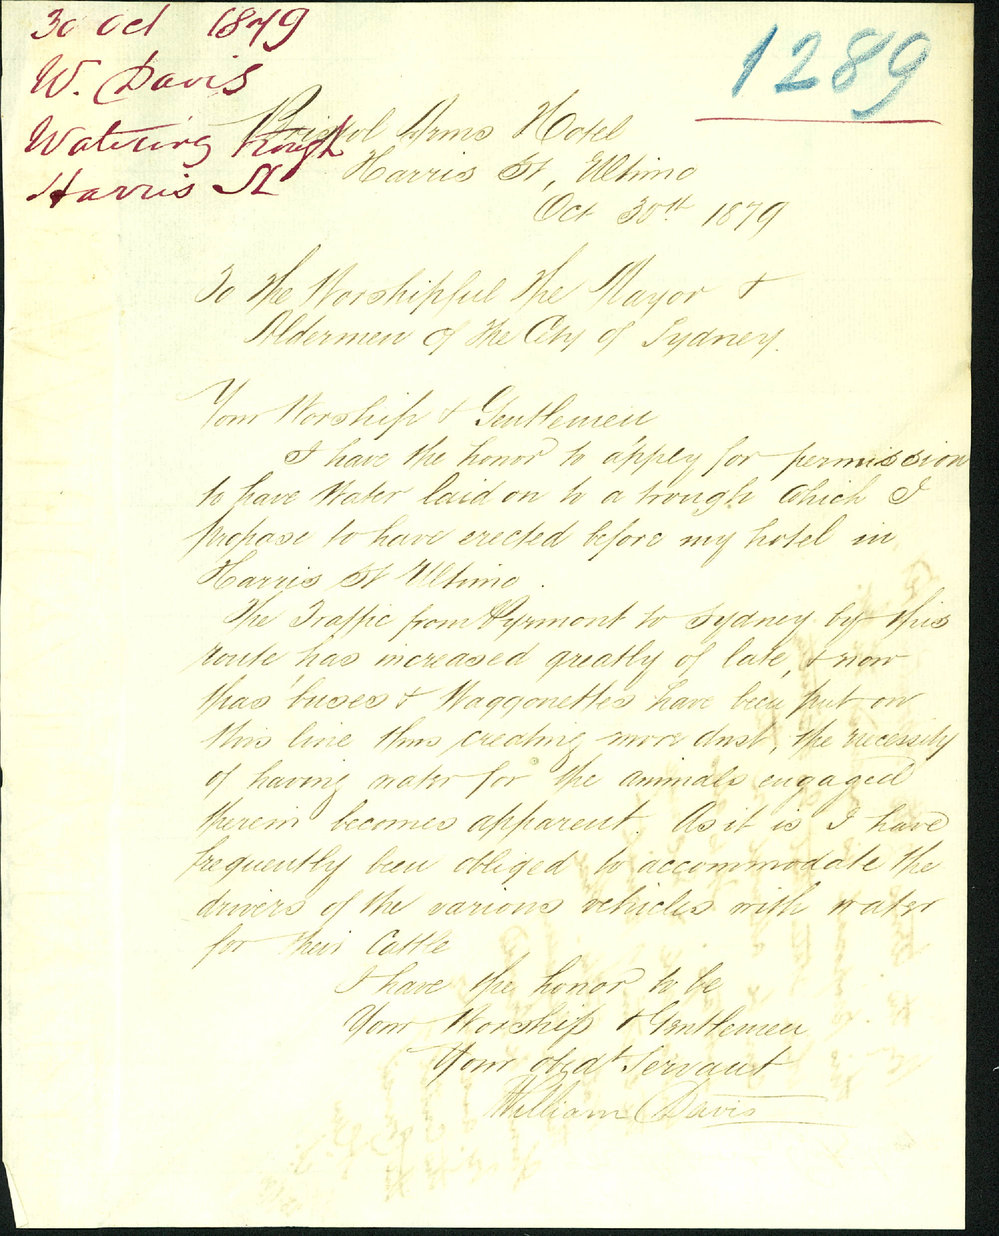 30 Oct 1879
W. Davis
Watering Trough
Harris St
1289
Bristol Arms Hotel
Harris St, Ultimo
Oct 30th 1879
To the Worshipful the Mayor &
Aldermen of the City of Sydney.
Your Worship & Gentlemen
I have the honor to apply for permission
to have Water laid on to a trough which I
propose to have erected before my hotel in
Harris St Ultimo.
The Traffic from Pyrmont to Sydney by this
route has increased greatly of late, & now
that buses & Waggonettes have been put on
this line thus creating more dust, the necessity
of having water for the animals engaged
therein becomes apparent. As it is I have
frequently been obliged to accommodate the
drivers of the various vehicles with water
for their Cattle
I have the honor to be
Your Worship & Gentlemen
Your obdt Servant
William Davis